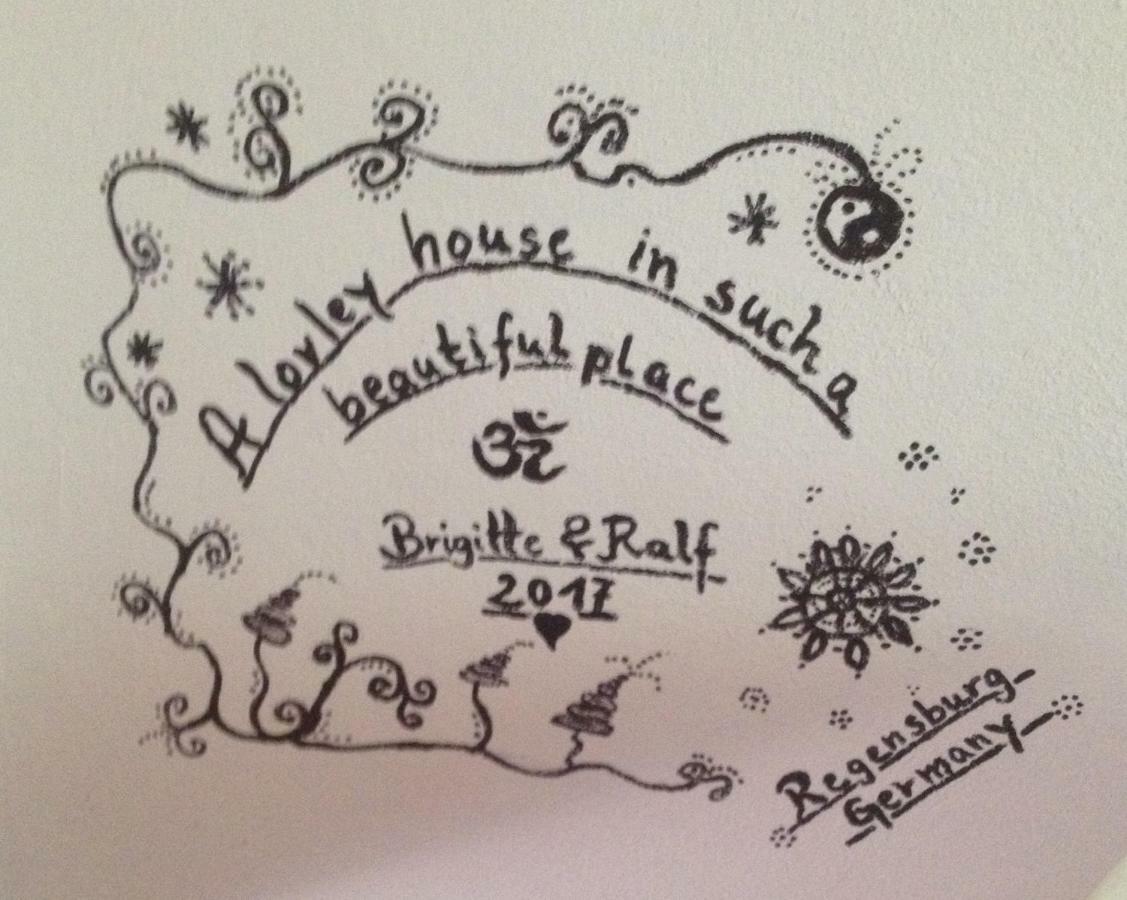 A lovley house in such a
beautiful place
ॐ
Brigitte & Ralf
2017
Regensburg
Germany